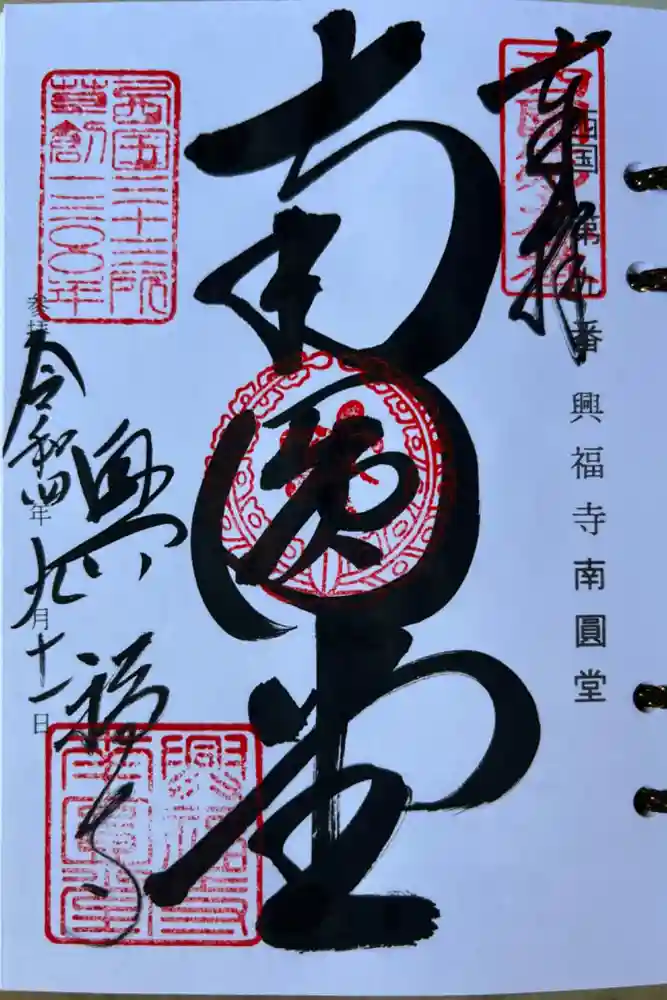 奉拝
西国 第九番 興福寺南圓堂
南圓堂
西国三十三所
草創一三〇〇年
参拝 令和四年九月十一日
興福寺
興福寺
南圓堂